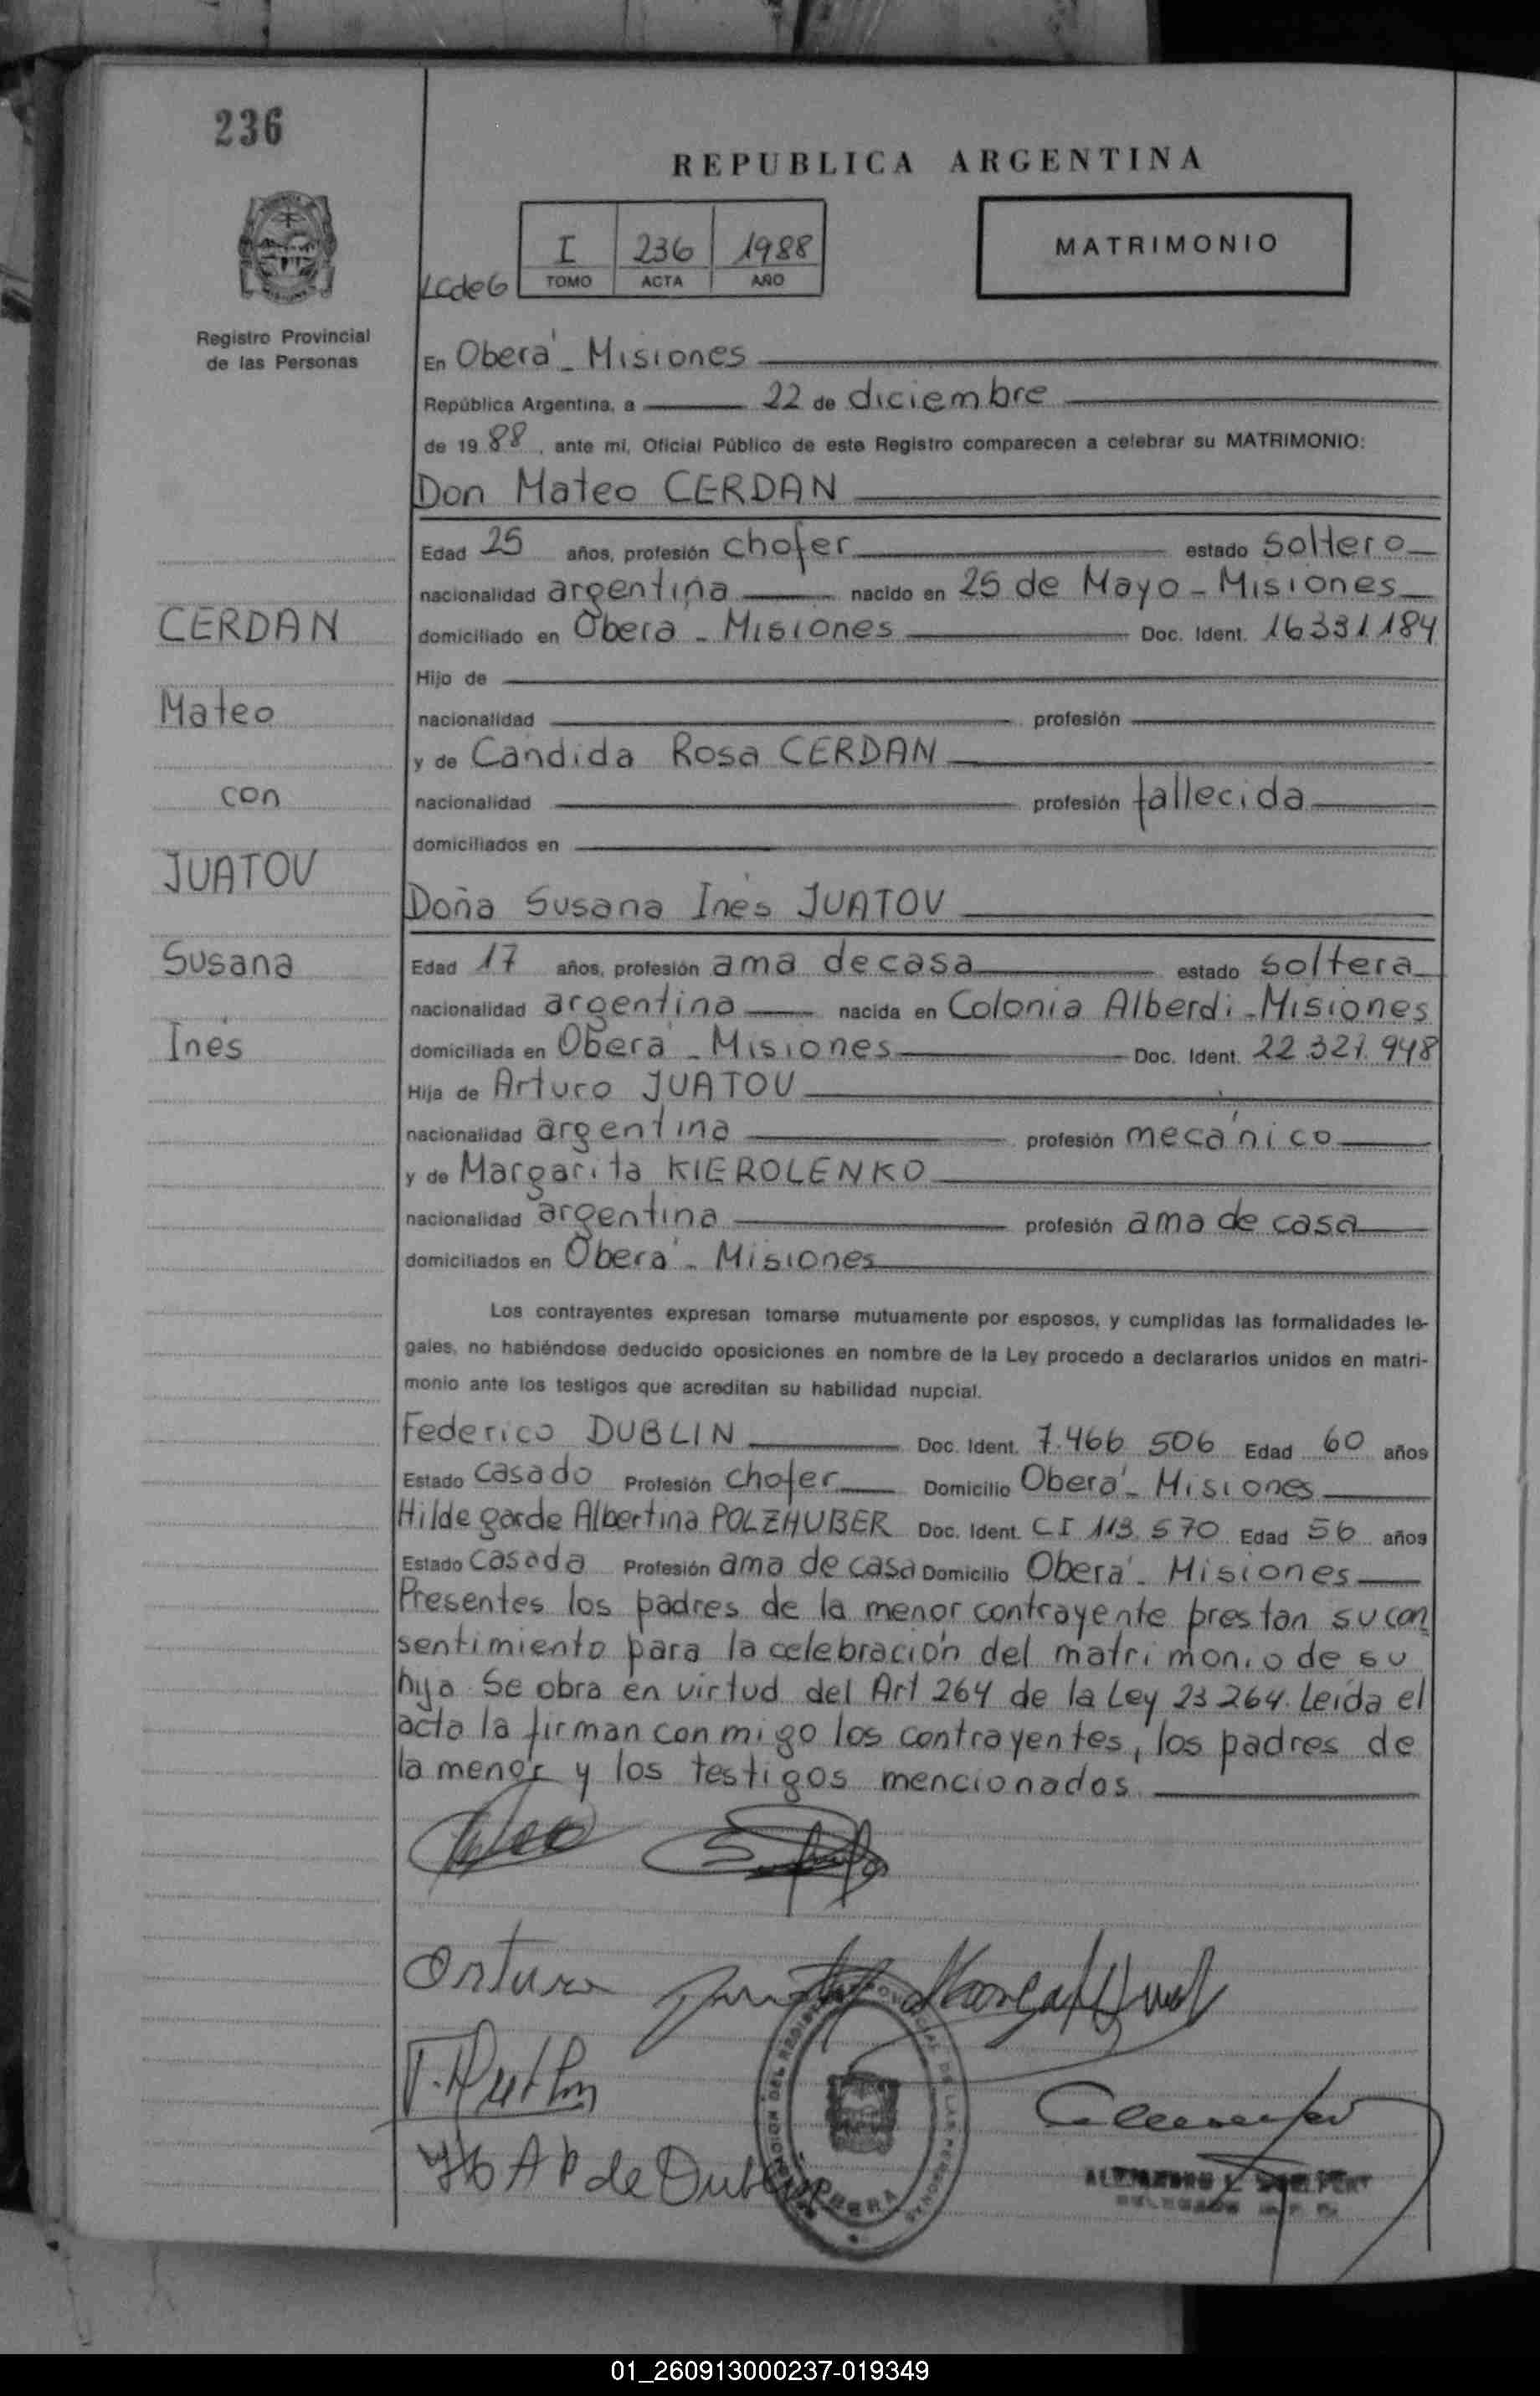 236
REPUBLICA ARGENTINA
I 236 1988
TOMO ACTA AÑO
MATRIMONIO
LCdeG
Registro Provincial
de las Personas
En Oberá - Misiones
República Argentina, a 22 de diciembre
de 1988, ante mi, Oficial Público de este Registro comparecen a celebrar su MATRIMONIO:
Don Mateo CERDAN
Edad 25 años, profesión chofer estado soltero
nacionalidad argentina nacido en 25 de Mayo - Misiones
domiciliado en Oberá - Misiones Doc. Ident. 16331184
Hijo de
nacionalidad profesión
y de Cándida Rosa CERDAN
nacionalidad profesión fallecida
domiciliados en
CERDAN
Mateo
con
JUATOV
Susana
Inés
Doña Susana Inés JUATOV
Edad 17 años, profesión ama de casa estado soltera
nacionalidad argentina nacida en Colonia Alberdi - Misiones
domiciliada en Oberá - Misiones Doc. Ident. 22.321.948
Hija de Arturo JUATOV
nacionalidad argentina profesión mecánico
y de Margarita KIEROLENKO
nacionalidad argentina profesión ama de casa
domiciliados en Oberá - Misiones
Los contrayentes expresan tomarse mutuamente por esposos, y cumplidas las formalidades le-
gales, no habiéndose deducido oposiciones en nombre de la Ley procedo a declararlos unidos en matri-
monio ante los testigos que acreditan su habilidad nupcial.
Federico DUBLIN Doc. Ident. 7.466 506 Edad 60 años
Estado casado Profesión chofer Domicilio Oberá - Misiones
Hildegarde Albertina POLZHUBER Doc. Ident. CI 113.570 Edad 56 años
Estado casada Profesión ama de casa Domicilio Oberá - Misiones
Presentes los padres de la menor contrayente prestan su con
sentimiento para la celebración del matrimonio de su
hija. Se obra en virtud del Art 264 de la Ley 23264. Leída el
acta la firman conmigo los contrayentes, los padres de
la menor y los testigos mencionados.
Arturo
de Dublin
01_260913000237-019349